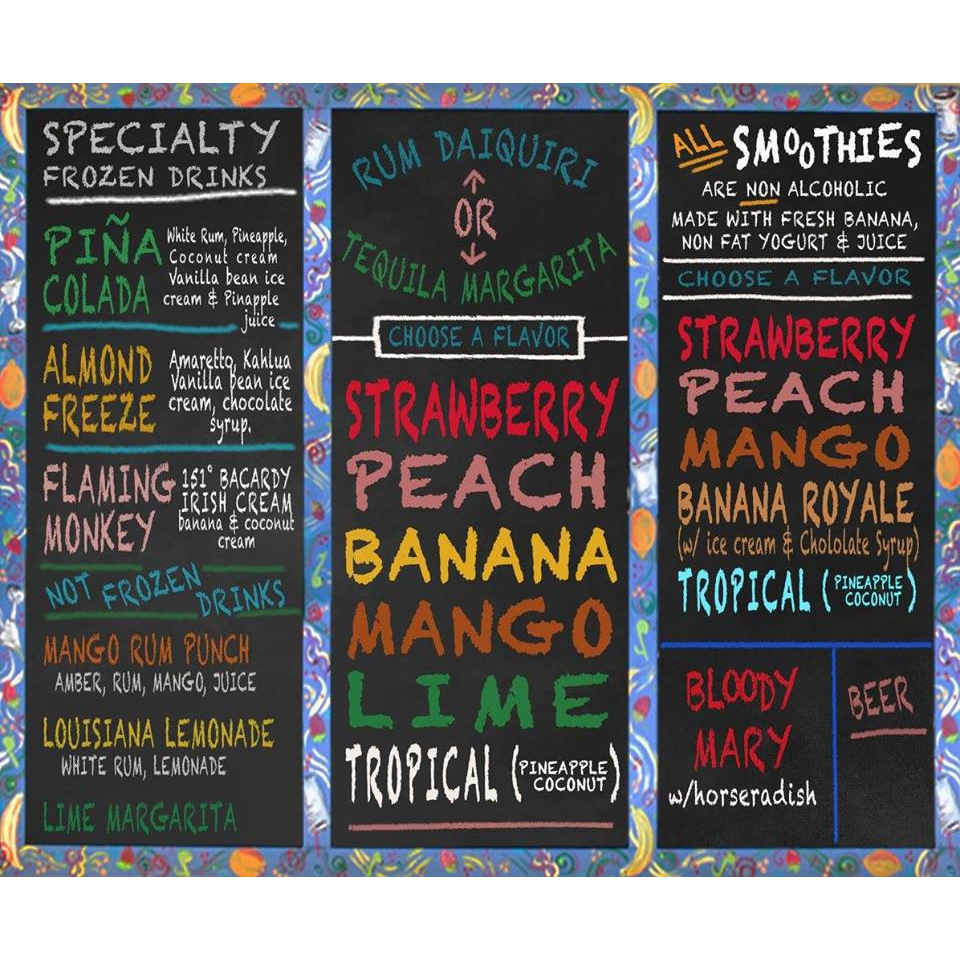 SPECIALTY
FROZEN DRINKS
PIÑA
COLADA
White Rum, Pineapple,
Coconut cream
Vanilla bean ice
cream & Pinapple
juice
ALMOND
FREEZE
Amaretto, Kahlua
Vanilla bean ice
cream, chocolate
syrup.
FLAMING
MONKEY
151° BACARDY
IRISH CREAM
banana & coconut
cream
NOT FROZEN
DRINKS
MANGO RUM PUNCH
AMBER, RUM, MANGO, JUICE
LOUISIANA LEMONADE
WHITE RUM, LEMONADE
LIME MARGARITA
RUM DAIQUIRI
OR
TEQUILA MARGARITA
CHOOSE A FLAVOR
STRAWBERRY
PEACH
BANANA
MANGO
LIME
TROPICAL (PINEAPPLE
COCONUT)
ALL SMOOTHIES
ARE NON ALCOHOLIC
MADE WITH FRESH BANANA,
NON FAT YOGURT & JUICE
CHOOSE A FLAVOR
STRAWBERRY
PEACH
MANGO
BANANA ROYALE
(w/ ice cream & Chololate Syrup)
TROPICAL (PINEAPPLE
COCONUT)
BLOODY
MARY
w/horseradish
BEER